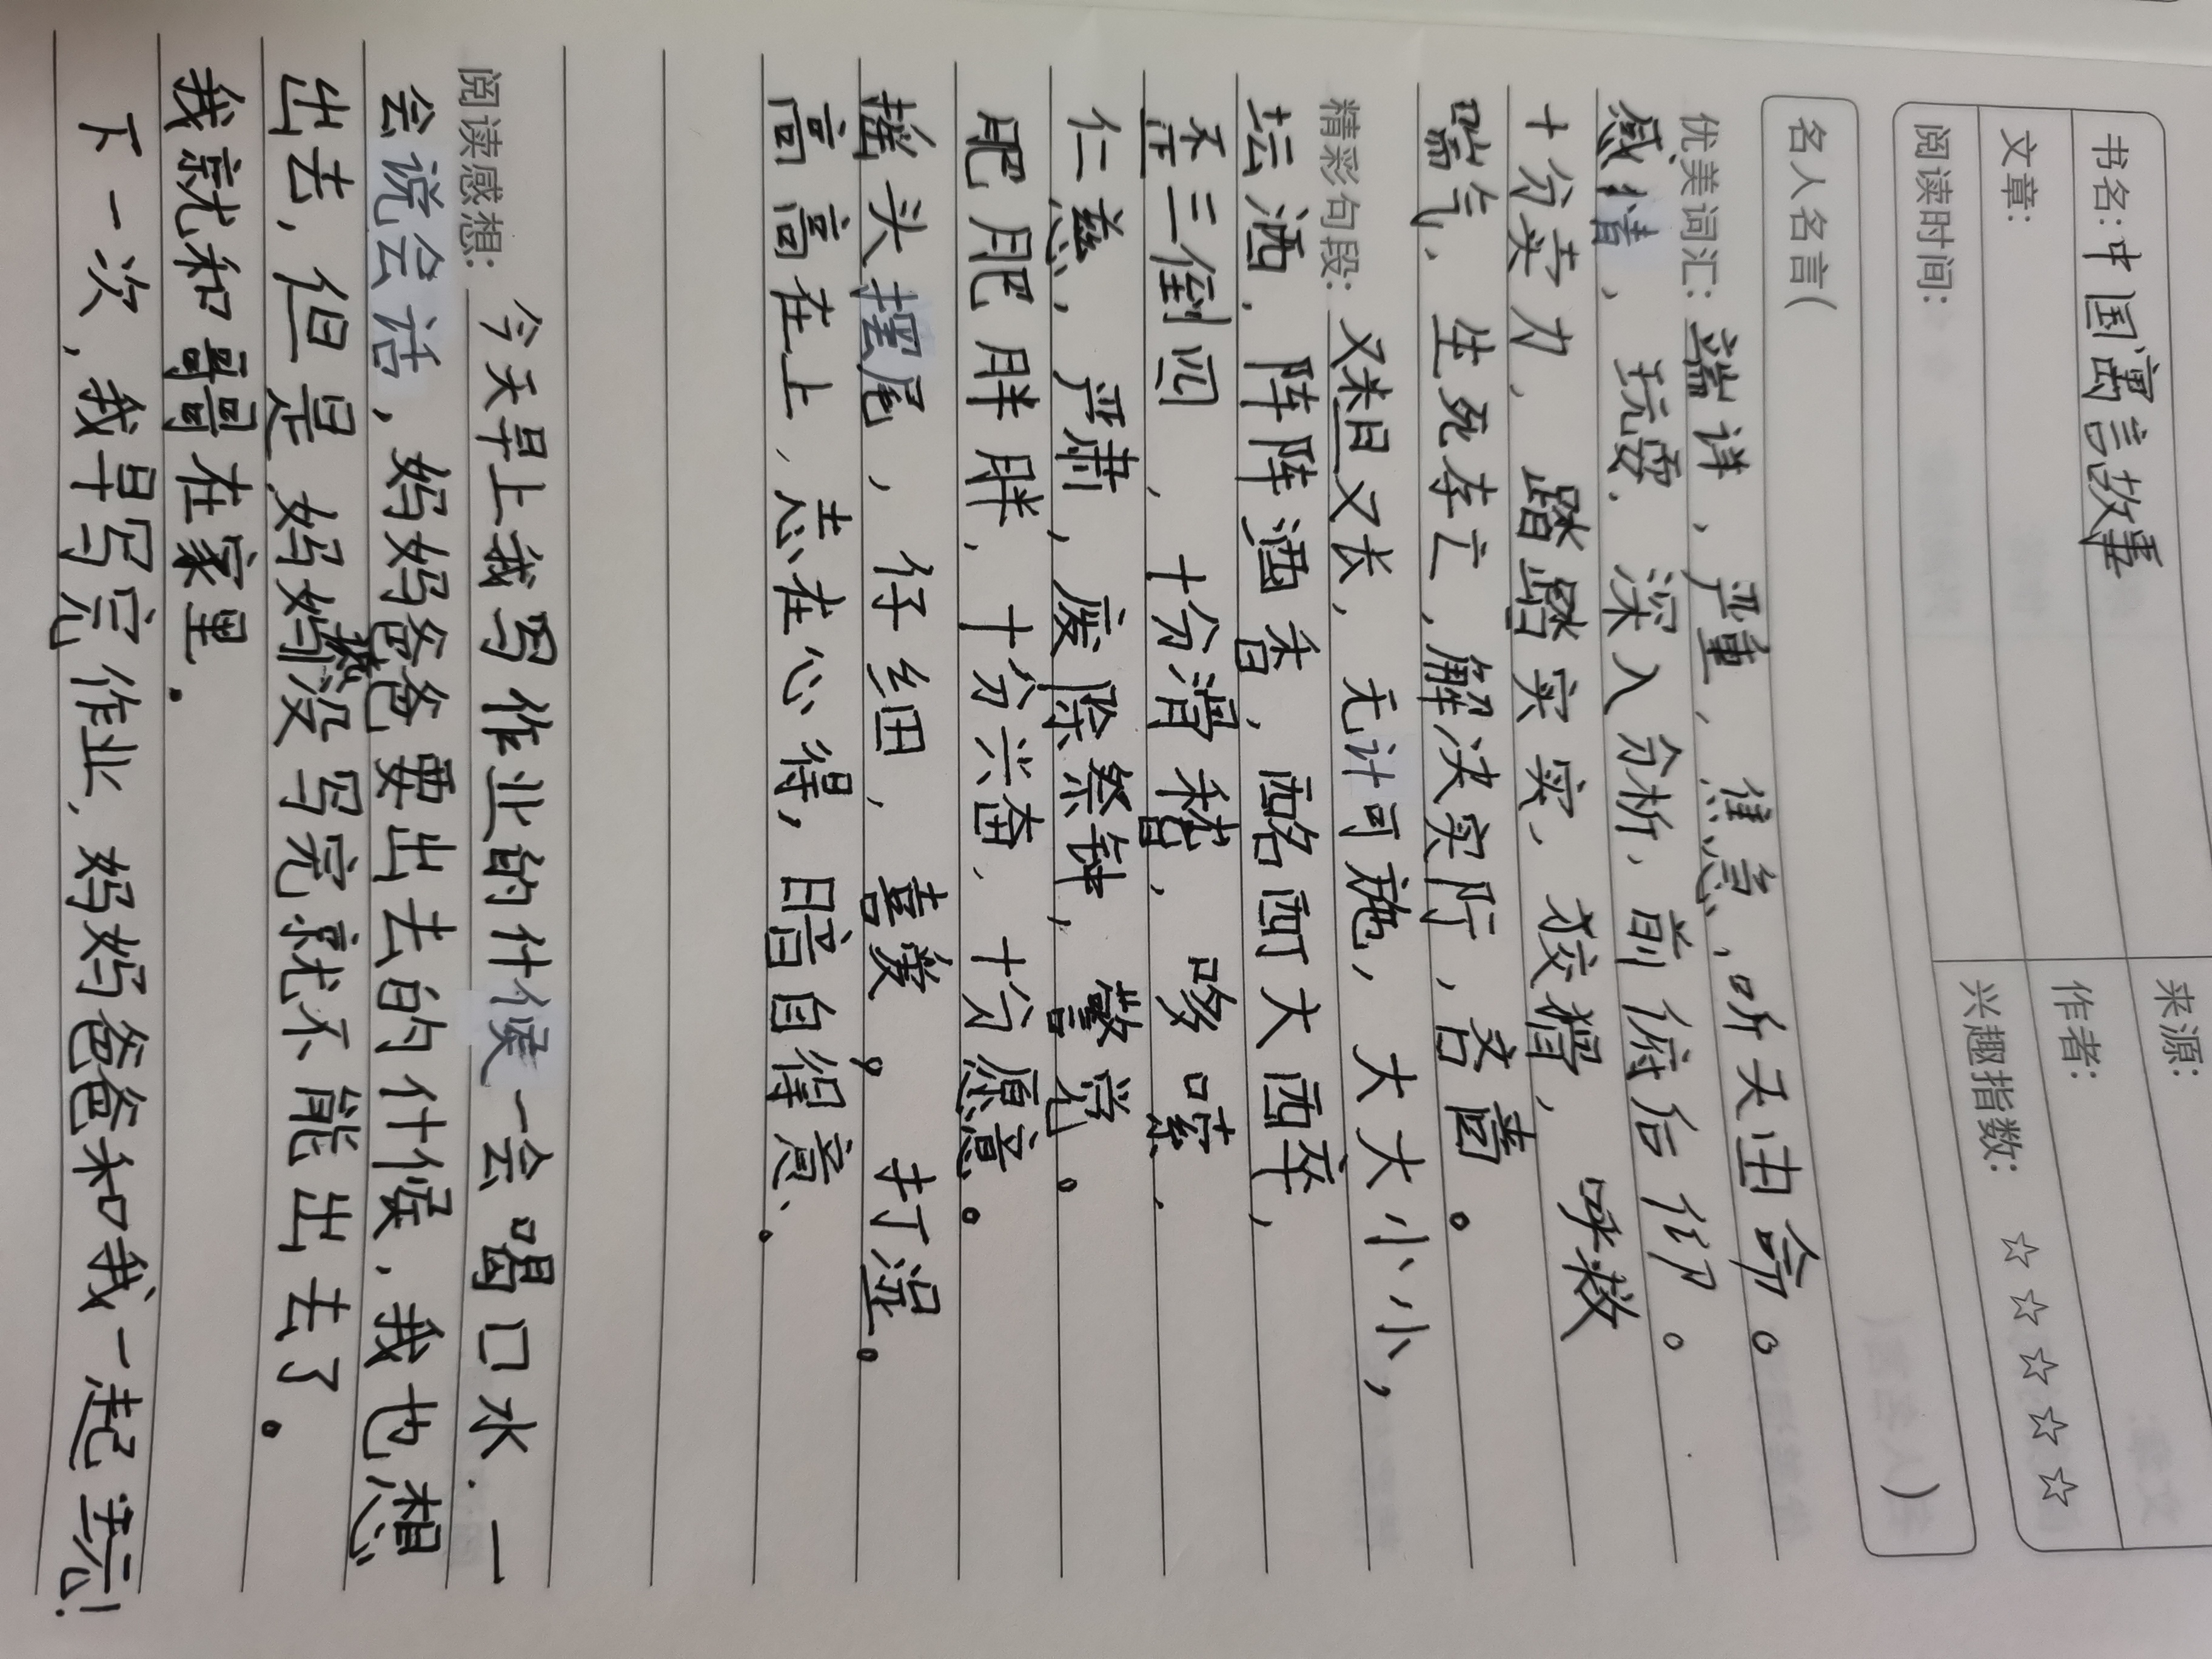 书名:中国寓言故事 来源:
文章: 作者:
阅读时间: 兴趣指数: ☆☆☆☆☆
名人名言( )
优美词汇: 端详，严重，焦急，听天由命。
感情，玩耍，深入分析，前俯后仰。
十分卖力，踏踏实实，狡猾，呼救
喘气，生死存亡，解决实际，吝啬。
精彩句段: 又粗又长，无计可施，大大小小，
坛酒，阵阵酒香，酩酊大醉，
丢三倒四，十分滑稽，哆嗦，
仁慈，严肃，废除祭钟，警觉。
肥肥胖胖，十分兴奋，十分愿意。
摇头摆尾，仔细，喜爱。打湿。
高高在上，忐在心得，暗自得意。
阅读感想: 今天早上我写作业的什候一会喝口水.一
会说会话，妈妈爸爸要出去的什候，我也想
出去，但是妈妈说没写完就不能出去了。
我就和哥哥在家里.
下一次，我早写完作业，妈妈爸爸和我一起玩!